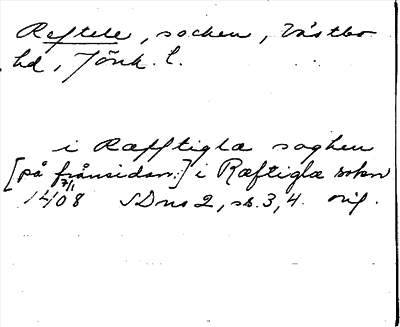 Reftele, socken, Västbo
hd, Jönk. l.
i Ræfftiglæ soghen
[på frånsidan:] i Ræftiglæ sokn
7/1
1408 SDns 2, sd. 3, 4. orig.